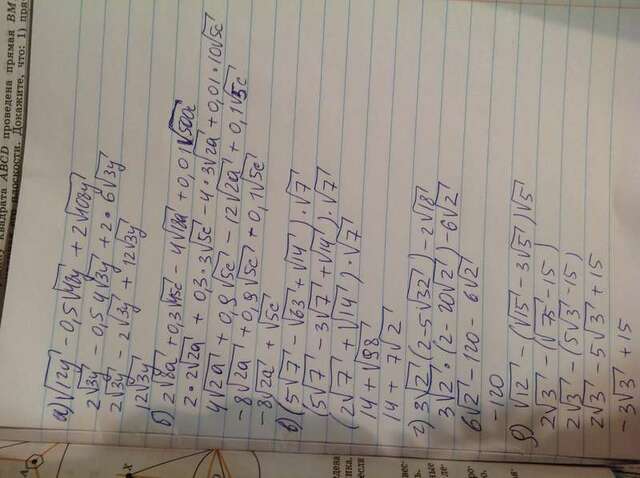 квадрата ABCD проведена прямая BM
плоскости. Докажите, что: 1)
а) √12y - 0,5√48y + 2√108y
2√3y - 0,5 4√3y + 2·6√3y
2√3y - 2√3y + 12√3y
12√3y
б) 2√8a + 0,3√45c - 4√18a + 0,01√500c
2·2√2a + 0,3·3√5c - 4·3√2a + 0,01·10√5c
4√2a + 0,9√5c - 12√2a + 0,1√5c
-8√2a + 0,9√5c + 0,1√5c
-8√2a + √5c
в) (5√7 - √63 + √14)·√7
(5√7 - 3√7 + √14)·√7
(2√7 + √14)·√7
14 + √98
14 + 7√2
г) 3√2 (2-5√32) - 2√18
3√2·(2-20√2) - 6√2
6√2 - 120 - 6√2
-120
д) √12 - (√15 - 3√5)√5
2√3 - (√75 - 15)
2√3 - (5√3 - 15)
2√3 - 5√3 + 15
-3√3 + 15